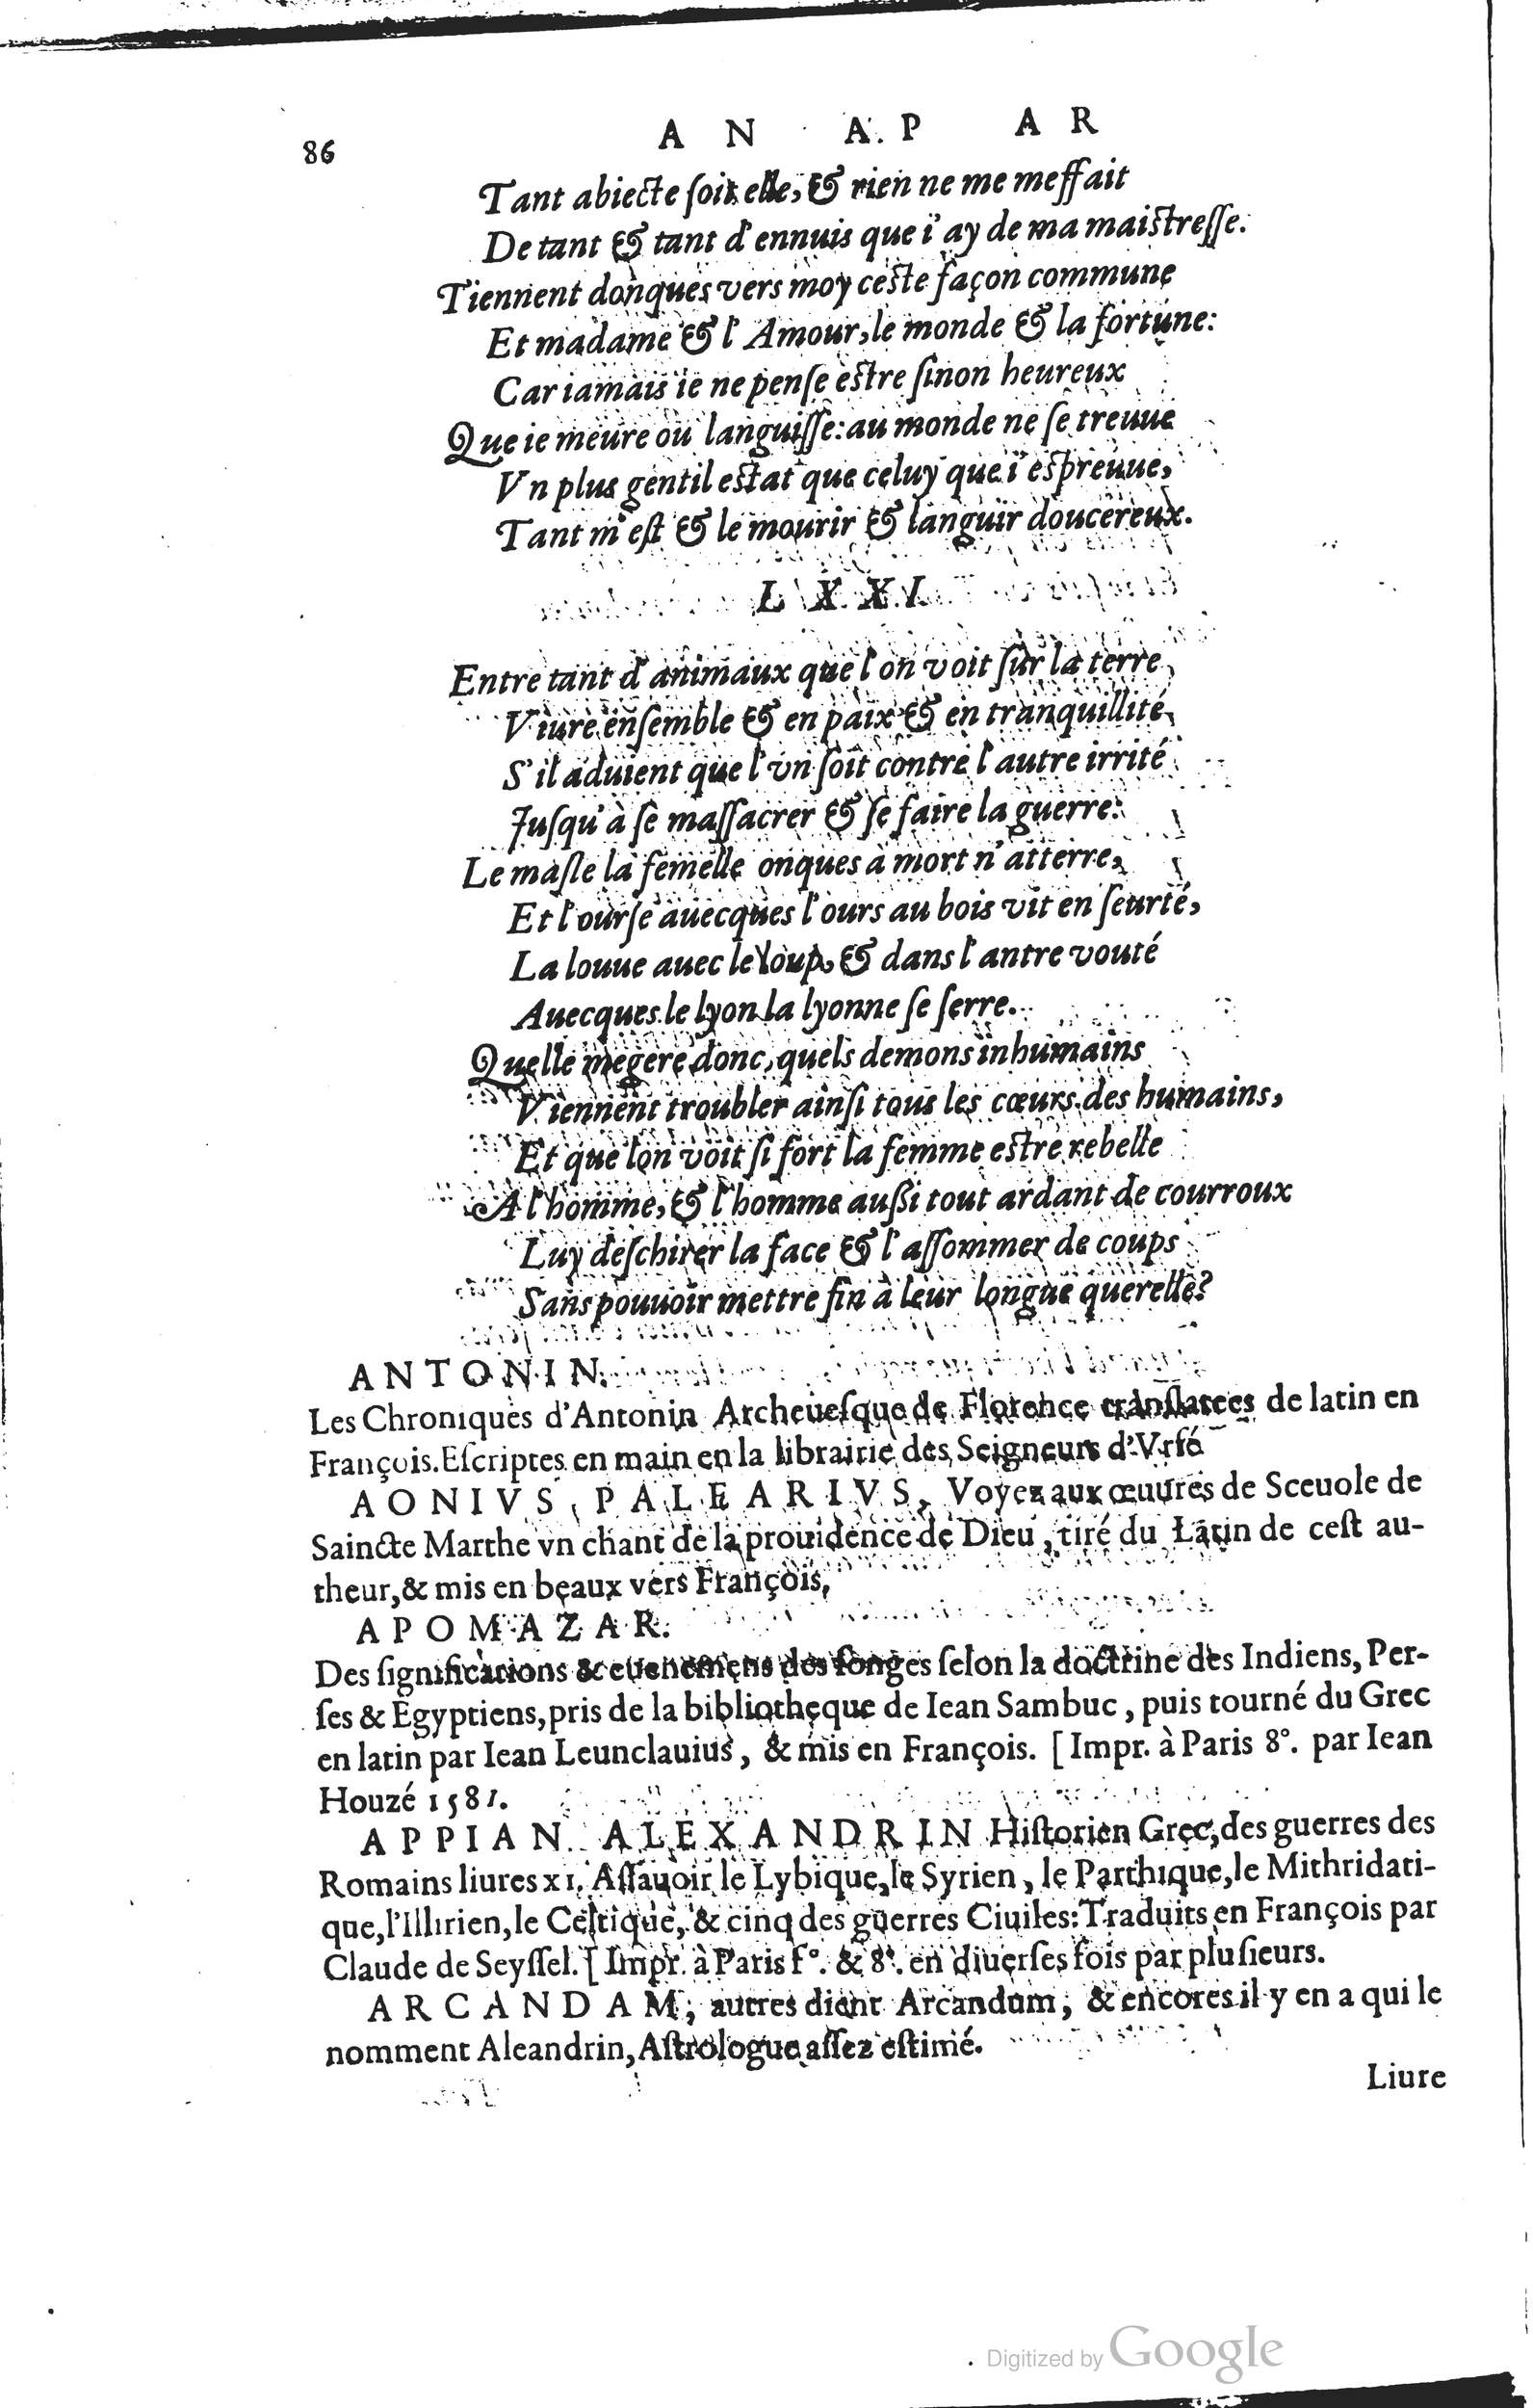 86 AN AP AR
Tant abiecte ſoit elle, & rien ne me meffait
De tant & tant d'ennuis que i'ay de ma maiſtreſſe.
Tiennent donques vers moy ceſte façon commune
Et madame & l'Amour, le monde & la fortune:
Car iamais ie ne penſe eſtre ſinon heureux
Que ie meure ou languiſſe: au monde ne ſe treuue
Vn plus gentil eſtat que celuy que i'eſpreuue,
Tant m'eſt & le mourir & languir doucereux.
LXXI
Entre tant d'animaux que l'on voit ſur la terre
Viure enſemble & en paix & en tranquillité,
S'il aduient que l'vn ſoit contre l'autre irrité
Juſqu'à ſe maſſacrer & ſe faire la guerre:
Le maſle la femelle onques à mort n'atterre,
Et l'ourſe auecques l'ours au bois vit en ſeurté,
La louue auec le loup, & dans l'antre vouté
Auecques le lyon la lyonne ſe ſerre.
Quelle megere donc, quels demons inhumains
Viennent troubler ainſi tous les cœurs des humains,
Et que lon voit ſi fort la femme eſtre rebelle
A l'homme, & l'homme außi tout ardant de courroux
Luy deſchirer la face & l'aſſommer de coups
Sans pouuoir mettre fin à leur longue querelle?
ANTONIN.
Les Chroniques d'Antonin Archeueſque de Florence tranſlatees de latin en
François. Eſcriptes en main en la librairie des Seigneurs d'Vrfé
AONIVS PALEARIVS, Voyez aux œuures de Sceuole de
Saincte Marthe vn chant de la prouidence de Dieu, tiré du Latin de ceſt au-
theur, & mis en beaux vers François,
APOMAZAR.
Des ſignifications & euenemens des ſonges ſelon la doctrine des Indiens, Per-
ſes & Egyptiens, pris de la bibliotheque de Iean Sambuc, puis tourné du Grec
en latin par Iean Leunclauius, & mis en François. [Impr. à Paris 8°. par Iean
Houzé 1581.
APPIAN ALEXANDRIN Hiſtorien Grec, des guerres des
Romains liures xi. Aſſauoir le Lybique, le Syrien, le Parthique, le Mithridati-
que, l'Illirien, le Celtique, & cinq des guerres Ciuiles: Traduits en François par
Claude de Seyſſel. [Impr. à Paris f°. & 8°. en diuerſes fois par pluſieurs.
ARCANDAM, autres dient Arcandum, & encores il y en a qui le
nomment Aleandrin, Aſtrologue aſſez eſtimé.
Liure
Digitized by Google